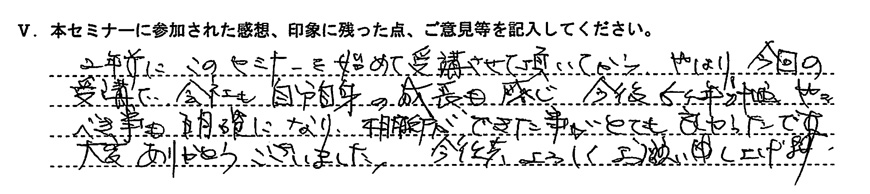 V. 本セミナーに参加された感想、印象に残った点、ご意見等を記入してください。
2年前にこのセミナーを始めて受講させて頂いてから、やはり今回の
受講で会社も自分自身の成長も感じ 今後
べき事も明確になり、相談ができた事がとても良かったです
大変ありがとうございました、今後共よろしくお願い申し上げ